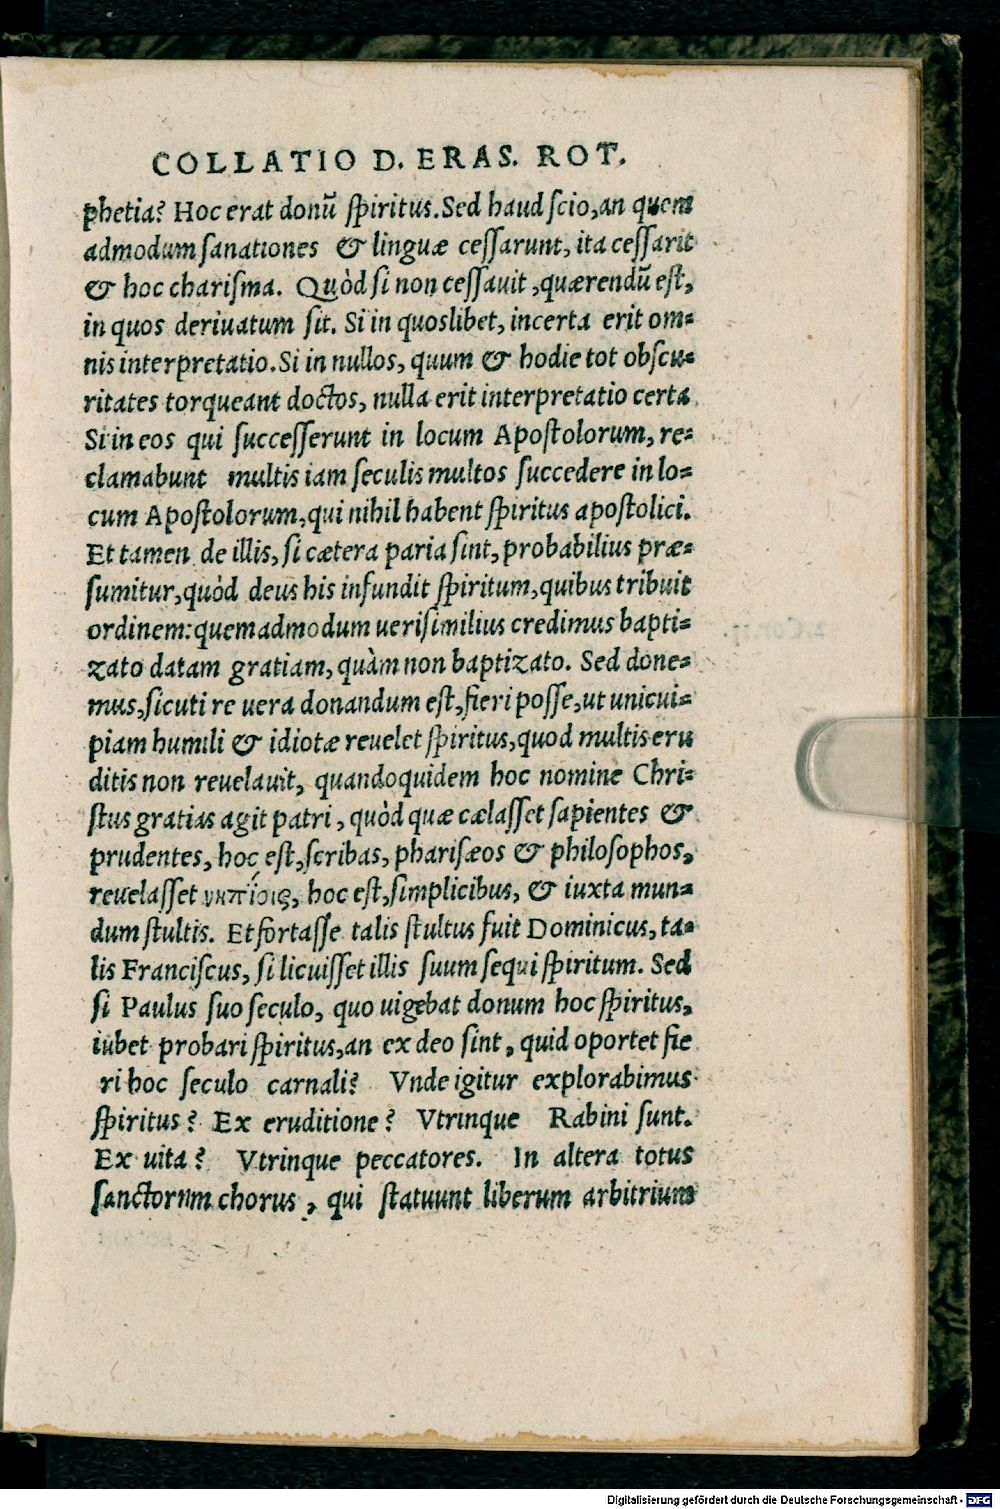 COLLATIO D. ERAS. ROT.
phetia? Hoc erat donũ spiritus. Sed haud scio, an quem
admodum sanationes & linguæ cessarunt, ita cessarit
& hoc charisma. Quòd si non cessauit, quærendũ est,
in quos deriuatum sit. Si in quoslibet, incerta erit om=
nis interpretatio. Si in nullos, quum & hodie tot obscu=
ritates torqueant doctos, nulla erit interpretatio certa.
Si in eos qui successerunt in locum Apostolorum, re=
clamabunt multis iam seculis multos succedere in lo=
cum Apostolorum, qui nihil habent spiritus apostolici.
Et tamen de illis, si cætera paria sint, probabilius præ=
sumitur, quòd deus his infundit spiritum, quibus tribuit
ordinem: quemadmodum uerisimilius credimus bapti=
zato datam gratiam, quàm non baptizato. Sed done=
mus, sicuti re uera donandum est, fieri posse, ut unicui=
piam humili & idiotæ reuelet spiritus, quod multis eru
ditis non reuelauit, quandoquidem hoc nomine Chri=
stus gratias agit patri, quòd quæ cælasset sapientes &
prudentes, hoc est, scribas, pharisæos & philosophos,
reuelasset νηπίοις, hoc est, simplicibus, & iuxta mun=
dum stultis. Et fortasse talis stultus fuit Dominicus, ta=
lis Franciscus, si licuisset illis suum sequi spiritum. Sed
si Paulus suo seculo, quo uigebat donum hoc spiritus,
iubet probari spiritus, an ex deo sint, quid oportet fie
ri hoc seculo carnali? Vnde igitur explorabimus
spiritus? Ex eruditione? Vtrinque Rabini sunt.
Ex uita? Vtrinque peccatores. In altera totus
sanctorum chorus, qui statuunt liberum arbitrium
Digitalisierung gefördert durch die Deutsche Forschungsgemeinschaft - DFG